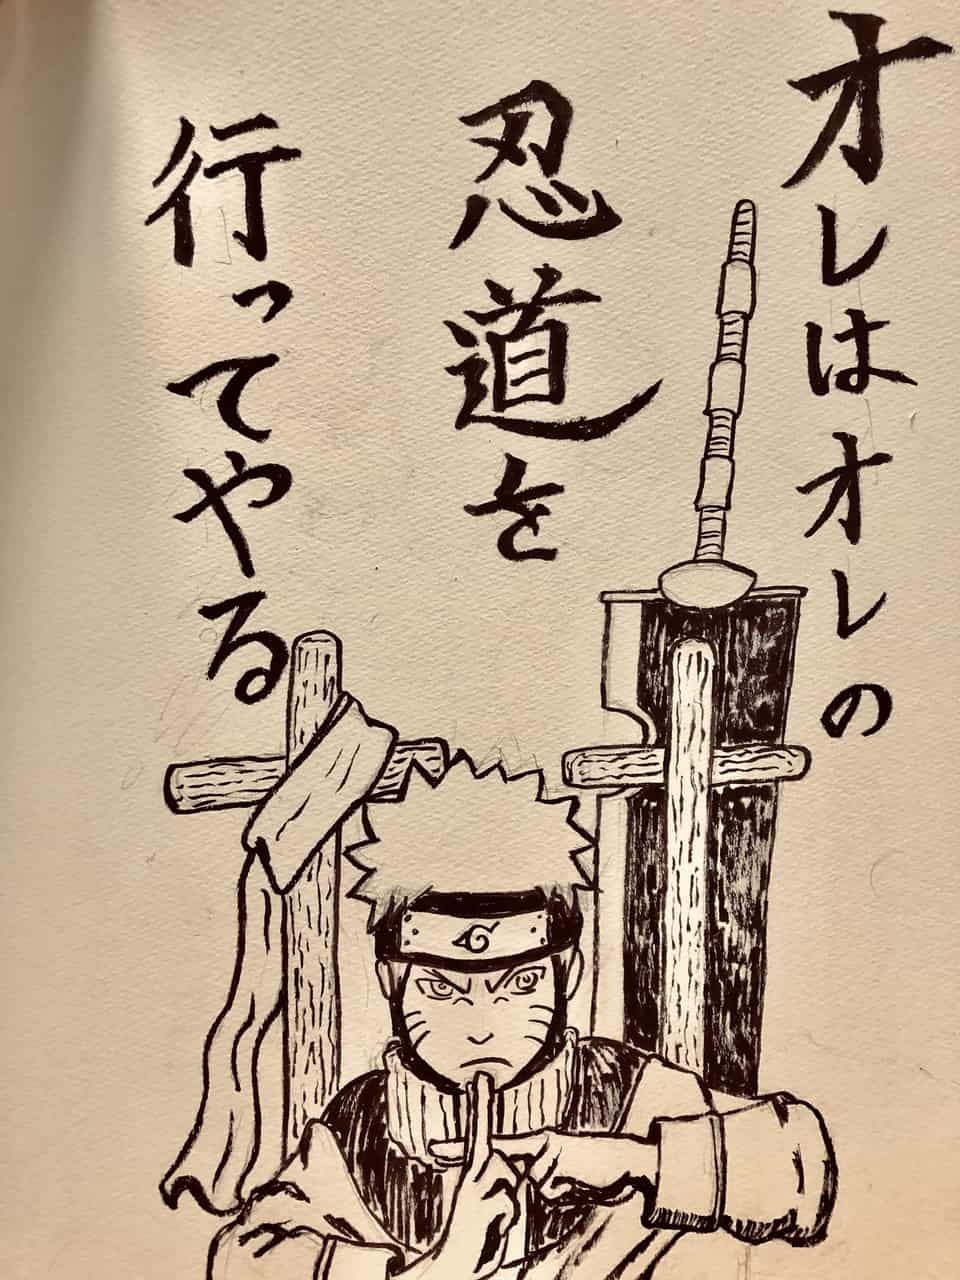 オレはオレの
忍道を
行ってやる